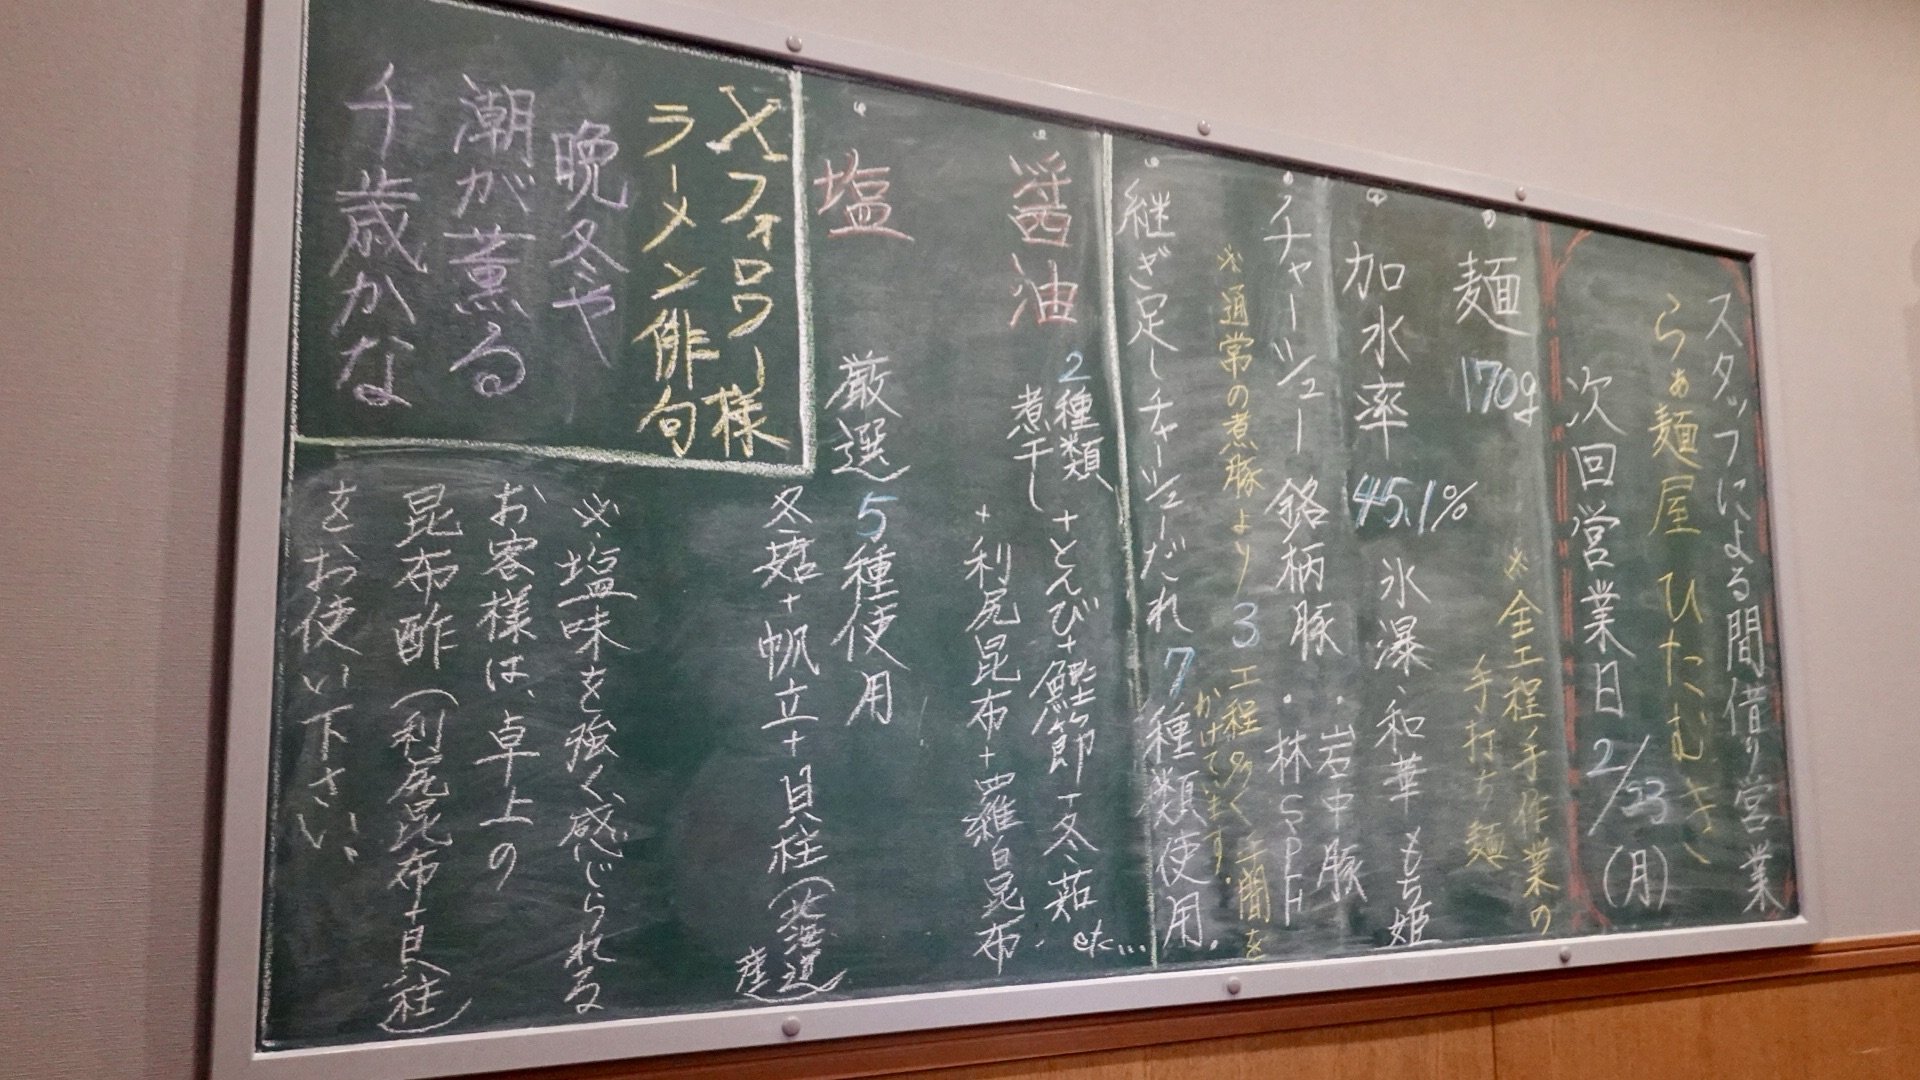 スタッフによる間借り営業
らぁ麺屋 ひたむき
次回営業日 2/23(月)
・麺 170g
※全工程手作業の
手打ち麺
・加水率 45.1% 氷瀑、和華 もち姫
・チャーシュー 銘柄豚 ・岩中豚
・林SPF
※通常の煮豚より3工程多く手間を
かけてます。
・継ぎ足しチャーシューだれ 7種類使用。
・醤油 2種類
煮干し +とんび+鰹節+冬菇 etc…
+利尻昆布+羅臼昆布.
・塩 厳選5種使用
冬菇+帆立+貝柱(北海道
産)
Xフォロワー様
ラーメン俳句
晩冬や
潮が薫る
千歳かな
※塩味を強く感じられる
お客様は、卓上の
昆布酢(利尻昆布+貝柱)
をお使い下さい、